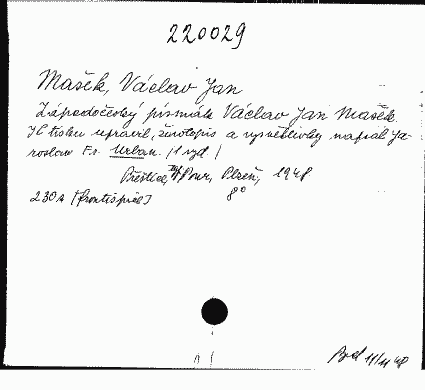 220029
Mašek, Václav Jan
Západočeský písmák Václav Jan Mašek.
K tisku upravil, životopis a vysvětlivky napsal Ja-
roslav Fr. Urban. /1 vyd./
Přeštice, Pour, Plzeň, 1948
230 s [frontispice] 8°
11/11 48